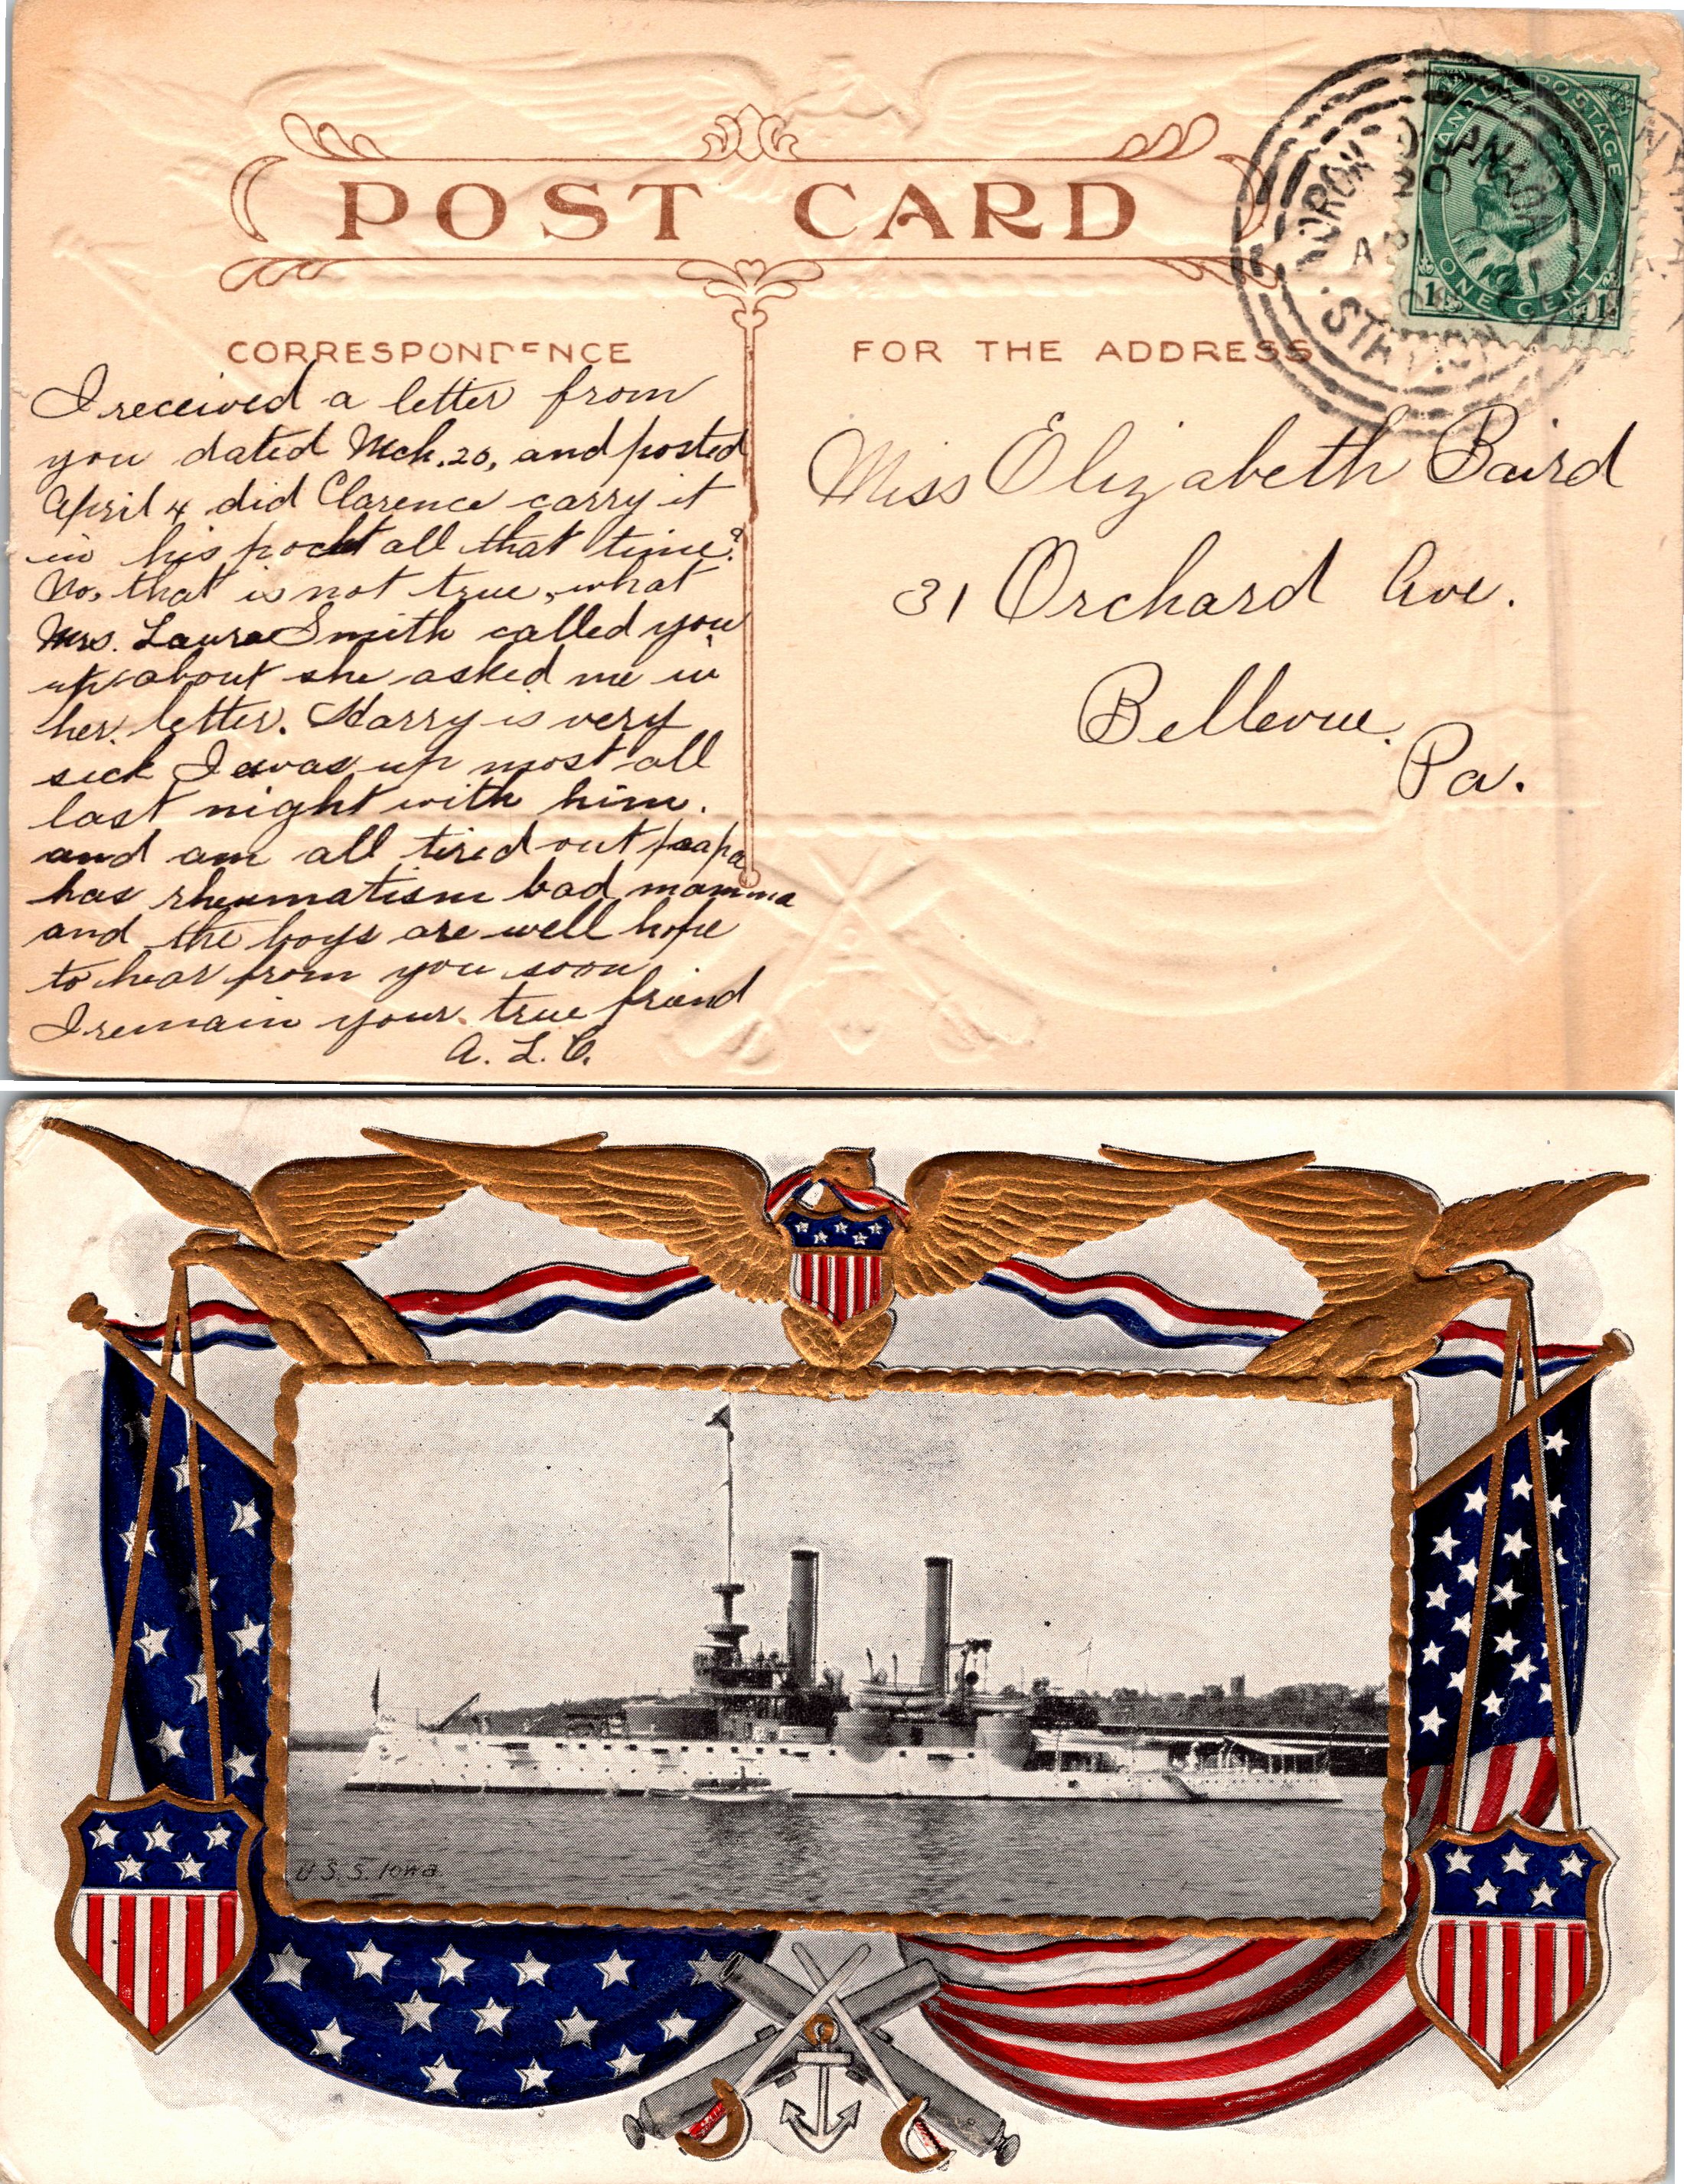 POST CARD
CANADA POSTAGE
1 ONE CENT 1
TORONTO CANADA
20
AP
STATION
CORRESPONDENCE
FOR THE ADDRESS
I received a letter from
you dated Mch. 20, and posted
April 4 did Clarence carry it
in his pocket all that time?
No, that is not true, what
Mrs. Laura Smith called you
up about she asked me in
her letter. Harry is very
sick I was up most all
last night with him.
and am all tired out paapa
has rheumatism bad mamma
and the boys are well hope
to hear from you soon
I remain your true friend
A. L. C.
Miss Elizabeth Baird
31 Orchard Ave.
Bellevue.
Pa.
U.S.S. Iowa